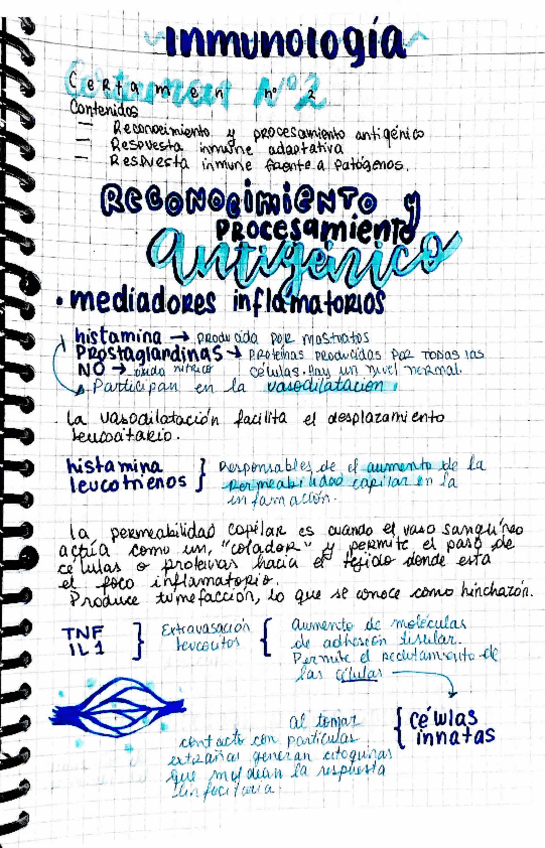 Inmunología
Certamen nº 2
Contenidos
— Reconocimiento y procesamiento antigénico
— Respuesta inmune adaptativa
— Respuesta inmune frente a patógenos.
Reconocimiento y
Procesamiento
Antigénico
• mediadores inflamatorios
histamina → producida por mastocitos
Prostaglandinas → proteínas producidas por todas las
NO → óxido nítrico células. Hay un nivel normal.
Participan en la vasodilatación.
La vasodilatación facilita el desplazamiento
leucocitario.
histamina } Responsables de el aumento de la
leucotrienos } permeabilidad capilar en la
inflamación.
La permeabilidad capilar es cuando el vaso sanguíneo
actúa como un "colador" y permite el paso de
células o proteínas hacia el tejido donde esta
el foco inflamatorio.
Produce tumefacción, lo que se conoce como hinchazón.
TNF } Extravasación { Aumento de moléculas
IL1 } leucocitos { de adhesión tisular.
Permite el reclutamiento de
las células
al tomar { células
contacto con partículas { innatas
extrañas generan citoquinas
que median la respuesta
linfocitaria.